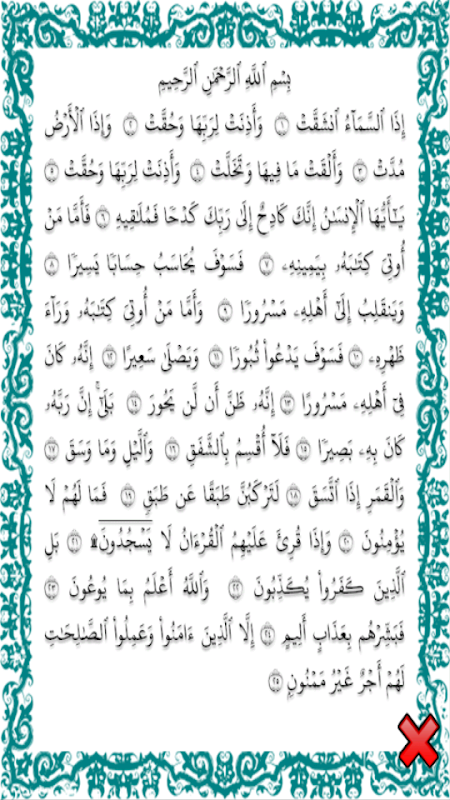 بِسْمِ ٱللَّهِ ٱلرَّحْمَٰنِ ٱلرَّحِيمِ
إِذَا ٱلسَّمَآءُ ٱنشَقَّتْ ١ وَأَذِنَتْ لِرَبِّهَا وَحُقَّتْ ٢ وَإِذَا ٱلْأَرْضُ
مُدَّتْ ٣ وَأَلْقَتْ مَا فِيهَا وَتَخَلَّتْ ٤ وَأَذِنَتْ لِرَبِّهَا وَحُقَّتْ ٥
يَٰٓأَيُّهَا ٱلْإِنسَٰنُ إِنَّكَ كَادِحٌ إِلَىٰ رَبِّكَ كَدْحًا فَمُلَٰقِيهِ ٦ فَأَمَّا مَنْ
أُوتِىَ كِتَٰبَهُۥ بِيَمِينِهِۦ ٧ فَسَوْفَ يُحَاسَبُ حِسَابًا يَسِيرًا ٨
وَيَنقَلِبُ إِلَىٰٓ أَهْلِهِۦ مَسْرُورًا ٩ وَأَمَّا مَنْ أُوتِىَ كِتَٰبَهُۥ وَرَآءَ
ظَهْرِهِۦ ١٠ فَسَوْفَ يَدْعُوا۟ ثُبُورًا ١١ وَيَصْلَىٰ سَعِيرًا ١٢ إِنَّهُۥ كَانَ
فِىٓ أَهْلِهِۦ مَسْرُورًا ١٣ إِنَّهُۥ ظَنَّ أَن لَّن يَحُورَ ١٤ بَلَىٰٓ إِنَّ رَبَّهُۥ
كَانَ بِهِۦ بَصِيرًا ١٥ فَلَآ أُقْسِمُ بِٱلشَّفَقِ ١٦ وَٱلَّيْلِ وَمَا وَسَقَ ١٧
وَٱلْقَمَرِ إِذَا ٱتَّسَقَ ١٨ لَتَرْكَبُنَّ طَبَقًا عَن طَبَقٍ ١٩ فَمَا لَهُمْ لَا
يُؤْمِنُونَ ٢٠ وَإِذَا قُرِئَ عَلَيْهِمُ ٱلْقُرْءَانُ لَا يَسْجُدُونَ ۩ ٢١ بَلِ
ٱلَّذِينَ كَفَرُوا۟ يُكَذِّبُونَ ٢٢ وَٱللَّهُ أَعْلَمُ بِمَا يُوعُونَ ٢٣
فَبَشِّرْهُم بِعَذَابٍ أَلِيمٍ ٢٤ إِلَّا ٱلَّذِينَ ءَامَنُوا۟ وَعَمِلُوا۟ ٱلصَّٰلِحَٰتِ
لَهُمْ أَجْرٌ غَيْرُ مَمْنُونٍۭ ٢٥